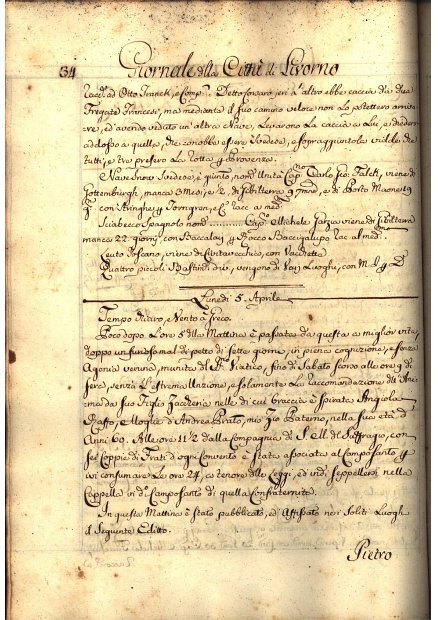 34 Giornale della Città di Livorno
ad Otto Franck, e Comp. Detto Corsaro jeri l'altro ebbe caccia da due
Fregate Francesi, ma mediante il suo camino veloce non lo potettero arriva=
re, ed avendo veduto un'altra Nave, Levarono La caccia a Lui, e diedero
adosso a quella, che conobbe essere Svedese, e sopraggiuntola vidde
tutti, e tre presero La Rotta di Provenza.
Nave Svedese, è giunto, nom.ta Unità Cap. Carlo Gio: Falck, viene di
Gottemburgh, manca 3 Mesi, e 1/2, di Gibilterra 9 gni, e di Porto Maone 19
con Aringhe, e Torngren, e C.i racc. a med.
Sciabecco Spagnolo nom. Cap. Michele viene di Gibilterra
manca 22 giorni, con Baccalay, e Rocco Baccigalupo rac. al med.
Leuto Toscano, viene di Civitavecchia, con Vacchette
Quattro piccoli Bastim.ti d.i, vengono di Varj Luoghi, con M. e D.
Lunedì 5. Aprile
Tempo Vario, Vento a Greco.
Poco dopo L'ore 5 della Mattina è passata da questa a miglior vita
doppo un furioso mal di petto di sette giorni, in piena cognizione, e senza
Agonia veruna, munita del SS. Viatico, fino di Sabato scorso alle ore 9 di
sera, senza L'estrema Unzione, e solamente La raccomandazione dell'Ani=
ma da suo Figlio Zaccheria nelle di cui braccia è spirata, Angiola
Raffo, e Moglie d'Andrea Prato, mio Zio Paterno, nella sua età d'
Anni 69. Alle ore 11 1/2 dalla Compagnia di S. Ell. di Suffragio, con
sei Coppie di Frati d'ogni Convento è stata associata al Camposanto, per
ivi consumare Le ore 24, a tenore delle Leggi, ed indi seppellirsi nella
Cappella in d.o Camposanto di quella Confraternita.
In questa Mattina è stato pubblicato, ed Affissato nei Soliti Luoghi
il Seguente Editto.
Pietro